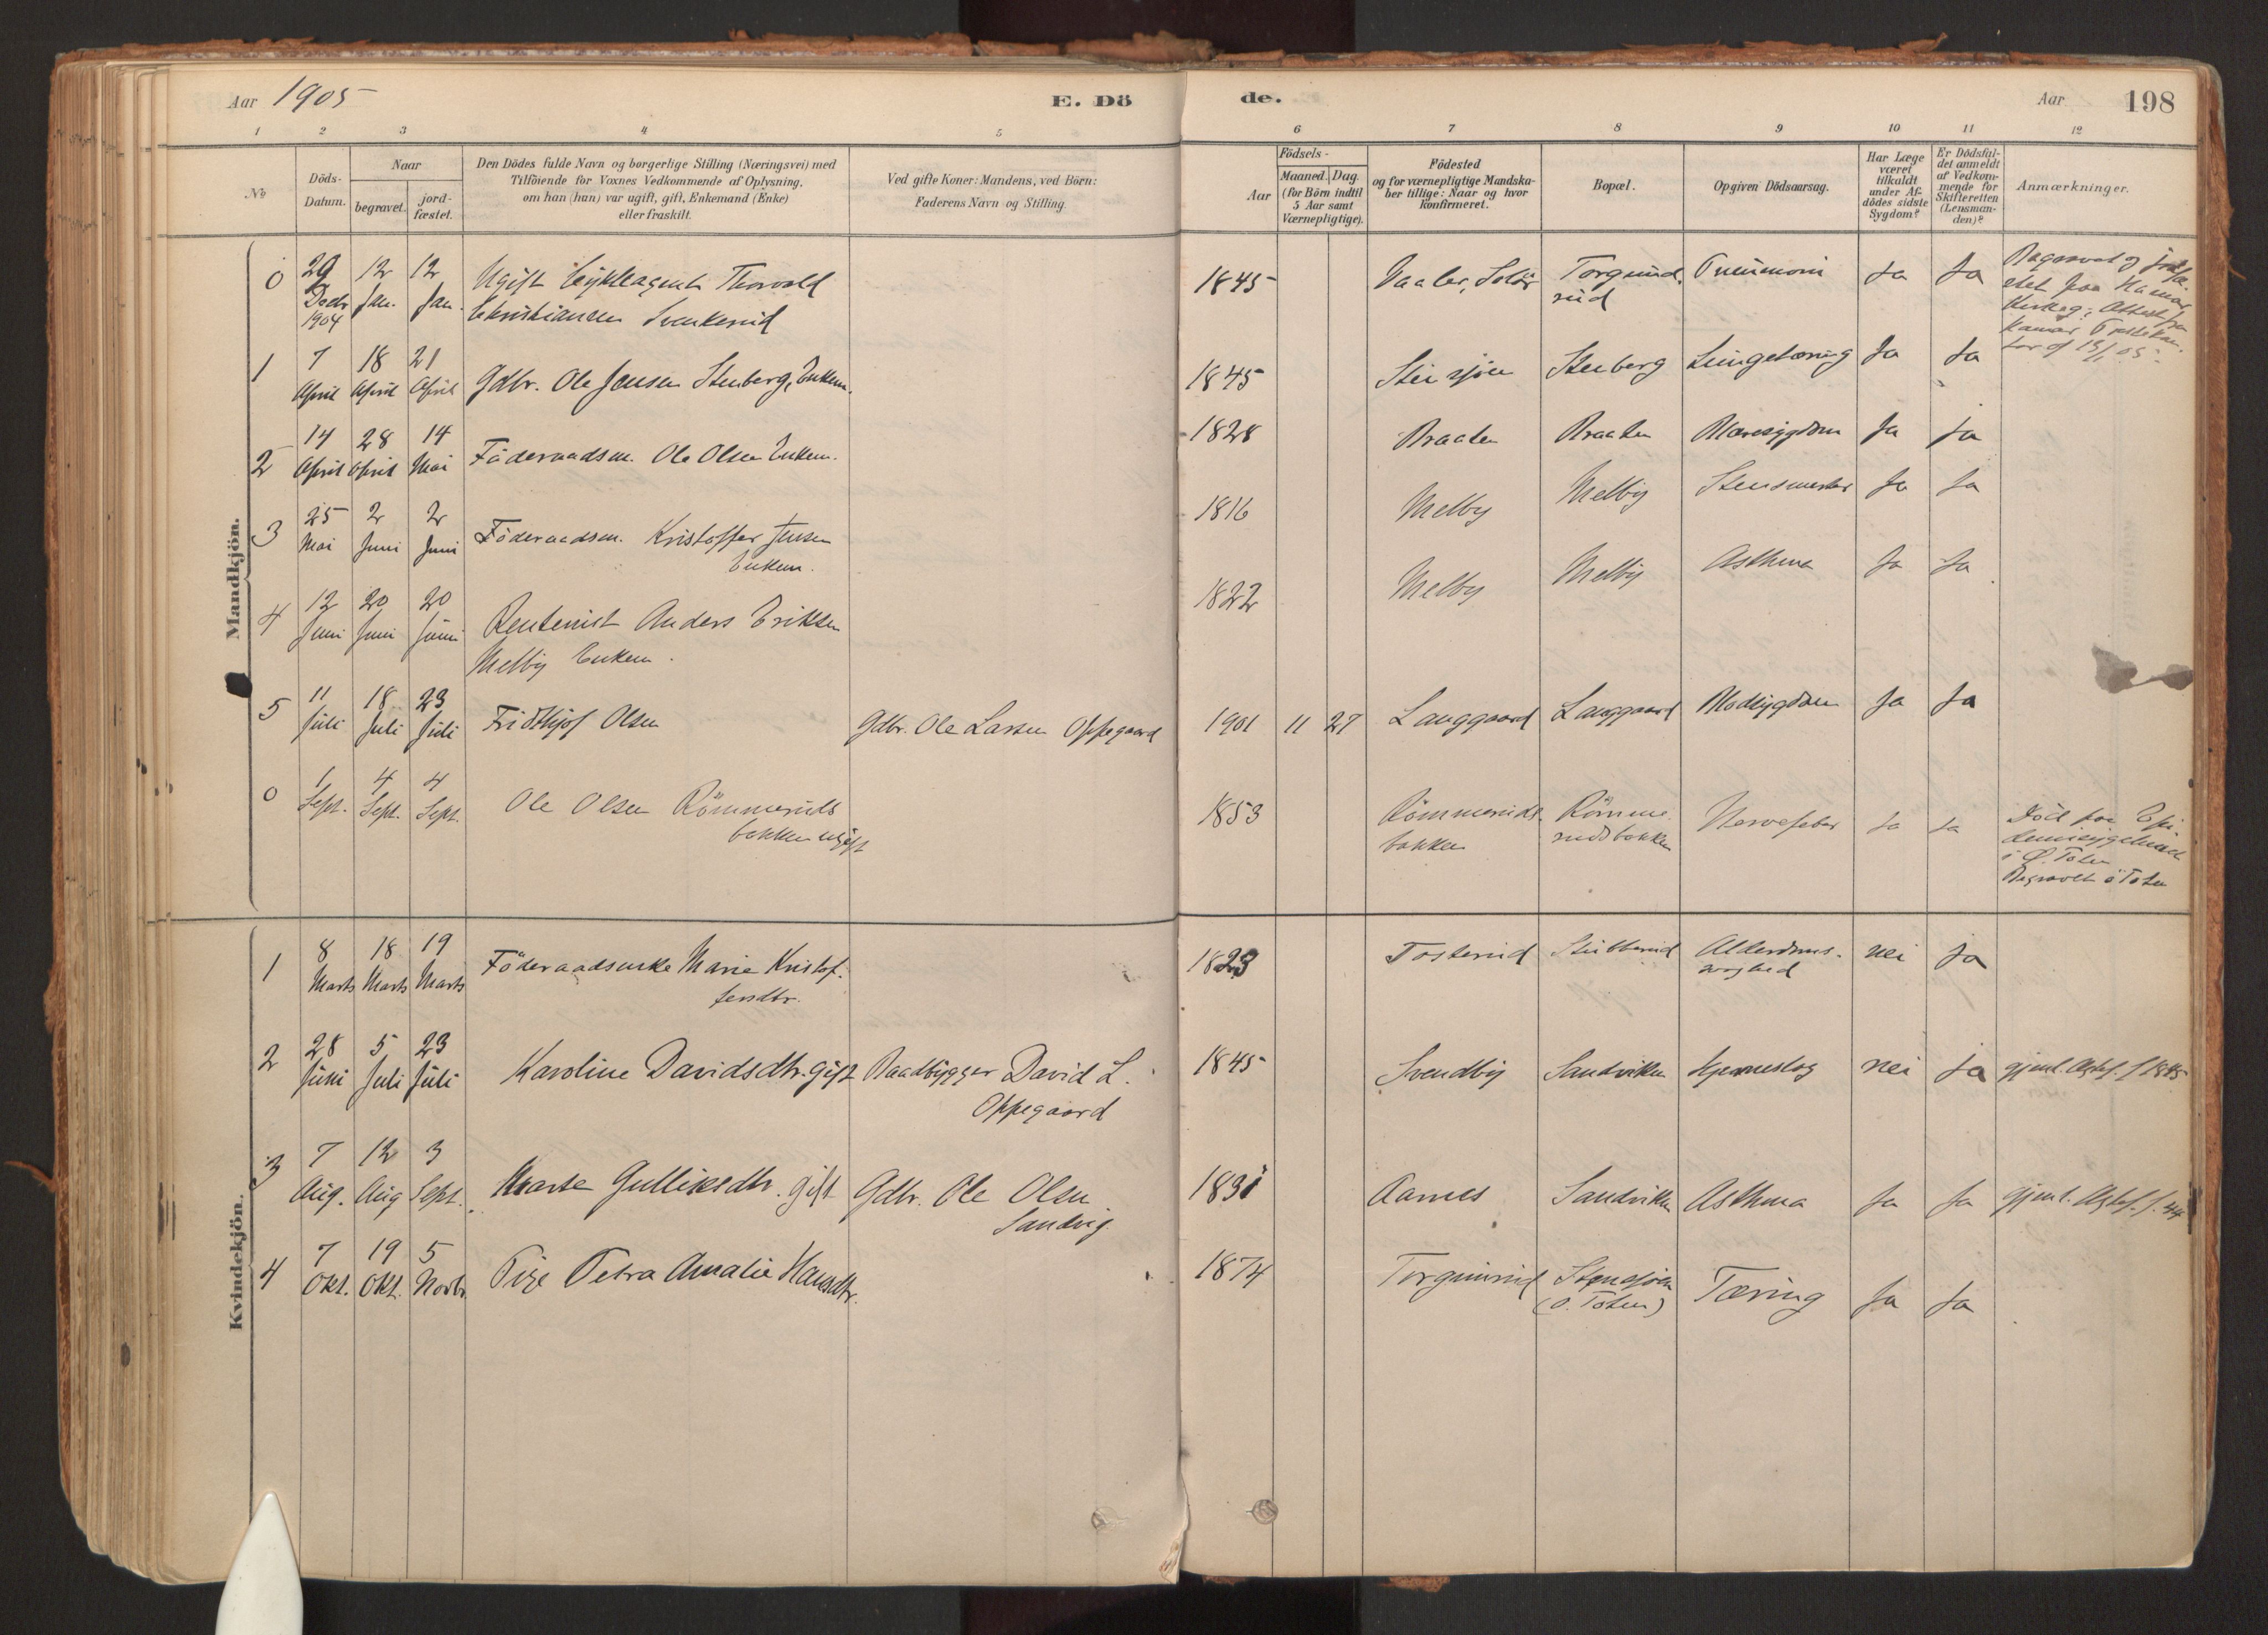 Aar 1905 E. Dö de. Aar 198
1 2 3 4 5 6 7 8 9 10 11 12
No Döds-Datum. Naar begravet. jord-fæstet. Den Dödes fulde Navn og borgerlige Stilling (Næringsvei) med Tilföiende for Voxnes Vedkommende af Oplysning, om han (hun) var ugift, gift, Enkemand (Enke) eller fraskilt. Ved gifte Koner: Mandens, ved Börn: Faderens Navn og Stilling. Födsels- Aar Maaned. Dag. (for Börn indtil 5 Aar samt Værnepligtige). Födested og for værnepligtige Mandskaber tillige: Naar og hvor konfirmeret. Bopæl. Opgiven Dödsaarsag. Har Læge været tilkaldt under Afdödes sidste Sygdom? Er Dödsfaldet anmeldt af Vedkommende for Skifteretten (Lensmanden)? Anmærkninger.
Mandkjön.
0 29 Decbr 1904 12 Jan. 12 Jan. Ugift Thorvald Christiansen Svenkerud 1845 Vaaler, Solör Torgunrud Pneumoni Ja Ja
1 7 April 18 April 21 April Gdbr. Ole Jensen Stenberg, Enkem. 1845 Steisjøen Stenberg Lungetæring Ja Ja
2 14 April 28 April 14 Mai Föderaadsm. Ole Olsen Enkem. 1828 Braaten Braaten Ja Ja
3 25 Mai 2 Juni 2 Juni Föderaadsm. Kristoffer Jensen Enkem. 1816 Melby Melby Stensmerter Ja Ja
4 12 Juni 20 Juni 20 Juni Rentenist Anders Eriksen Melby Enkem. 1822 Melby Melby Asthma Ja Ja
5 11 Juli 18 Juli 23 Juli Fridthjof Olsen Gdbr. Ole Larsen Oppegaard 1901 11 27 Langgaard Langgaard Ja Ja
0 1 Sept. 4 Sept. 4 Sept. Ole Olsen Römmerudsbakken ugift 1853 Römmerudsbakken Römmerudsbakken Nervefeber Ja Ja Död paa Epidemisygehuset i Ø. Toten Begravet i Toten
Kvindekjön.
1 8 Marts 18 Marts 19 Marts Föderaadsenke Marie Kristoffersdtr. 1823 Tosterud Stubberud Alderdomssvaghed nei Ja
2 28 Juni 5 Juli 23 Juli Karoline Davidsdtr. gift Baadbygger David L. Oppegaard 1845 Svendby Sandviken Hjerneslag nei Ja
3 7 Aug. 12 Aug 3 Sept. Marte Gulliksdtr. gift Gdbr. Ole Olsen Sandvig 1831 Aarnes Sandviken Asthma Ja Ja
4 7 Okt. 19 Okt. 5 Novbr. Pige Petra Amalie Hansdtr. 1874 Torgunrud Stensjøen (Ö. Toten) Tæring Ja Ja